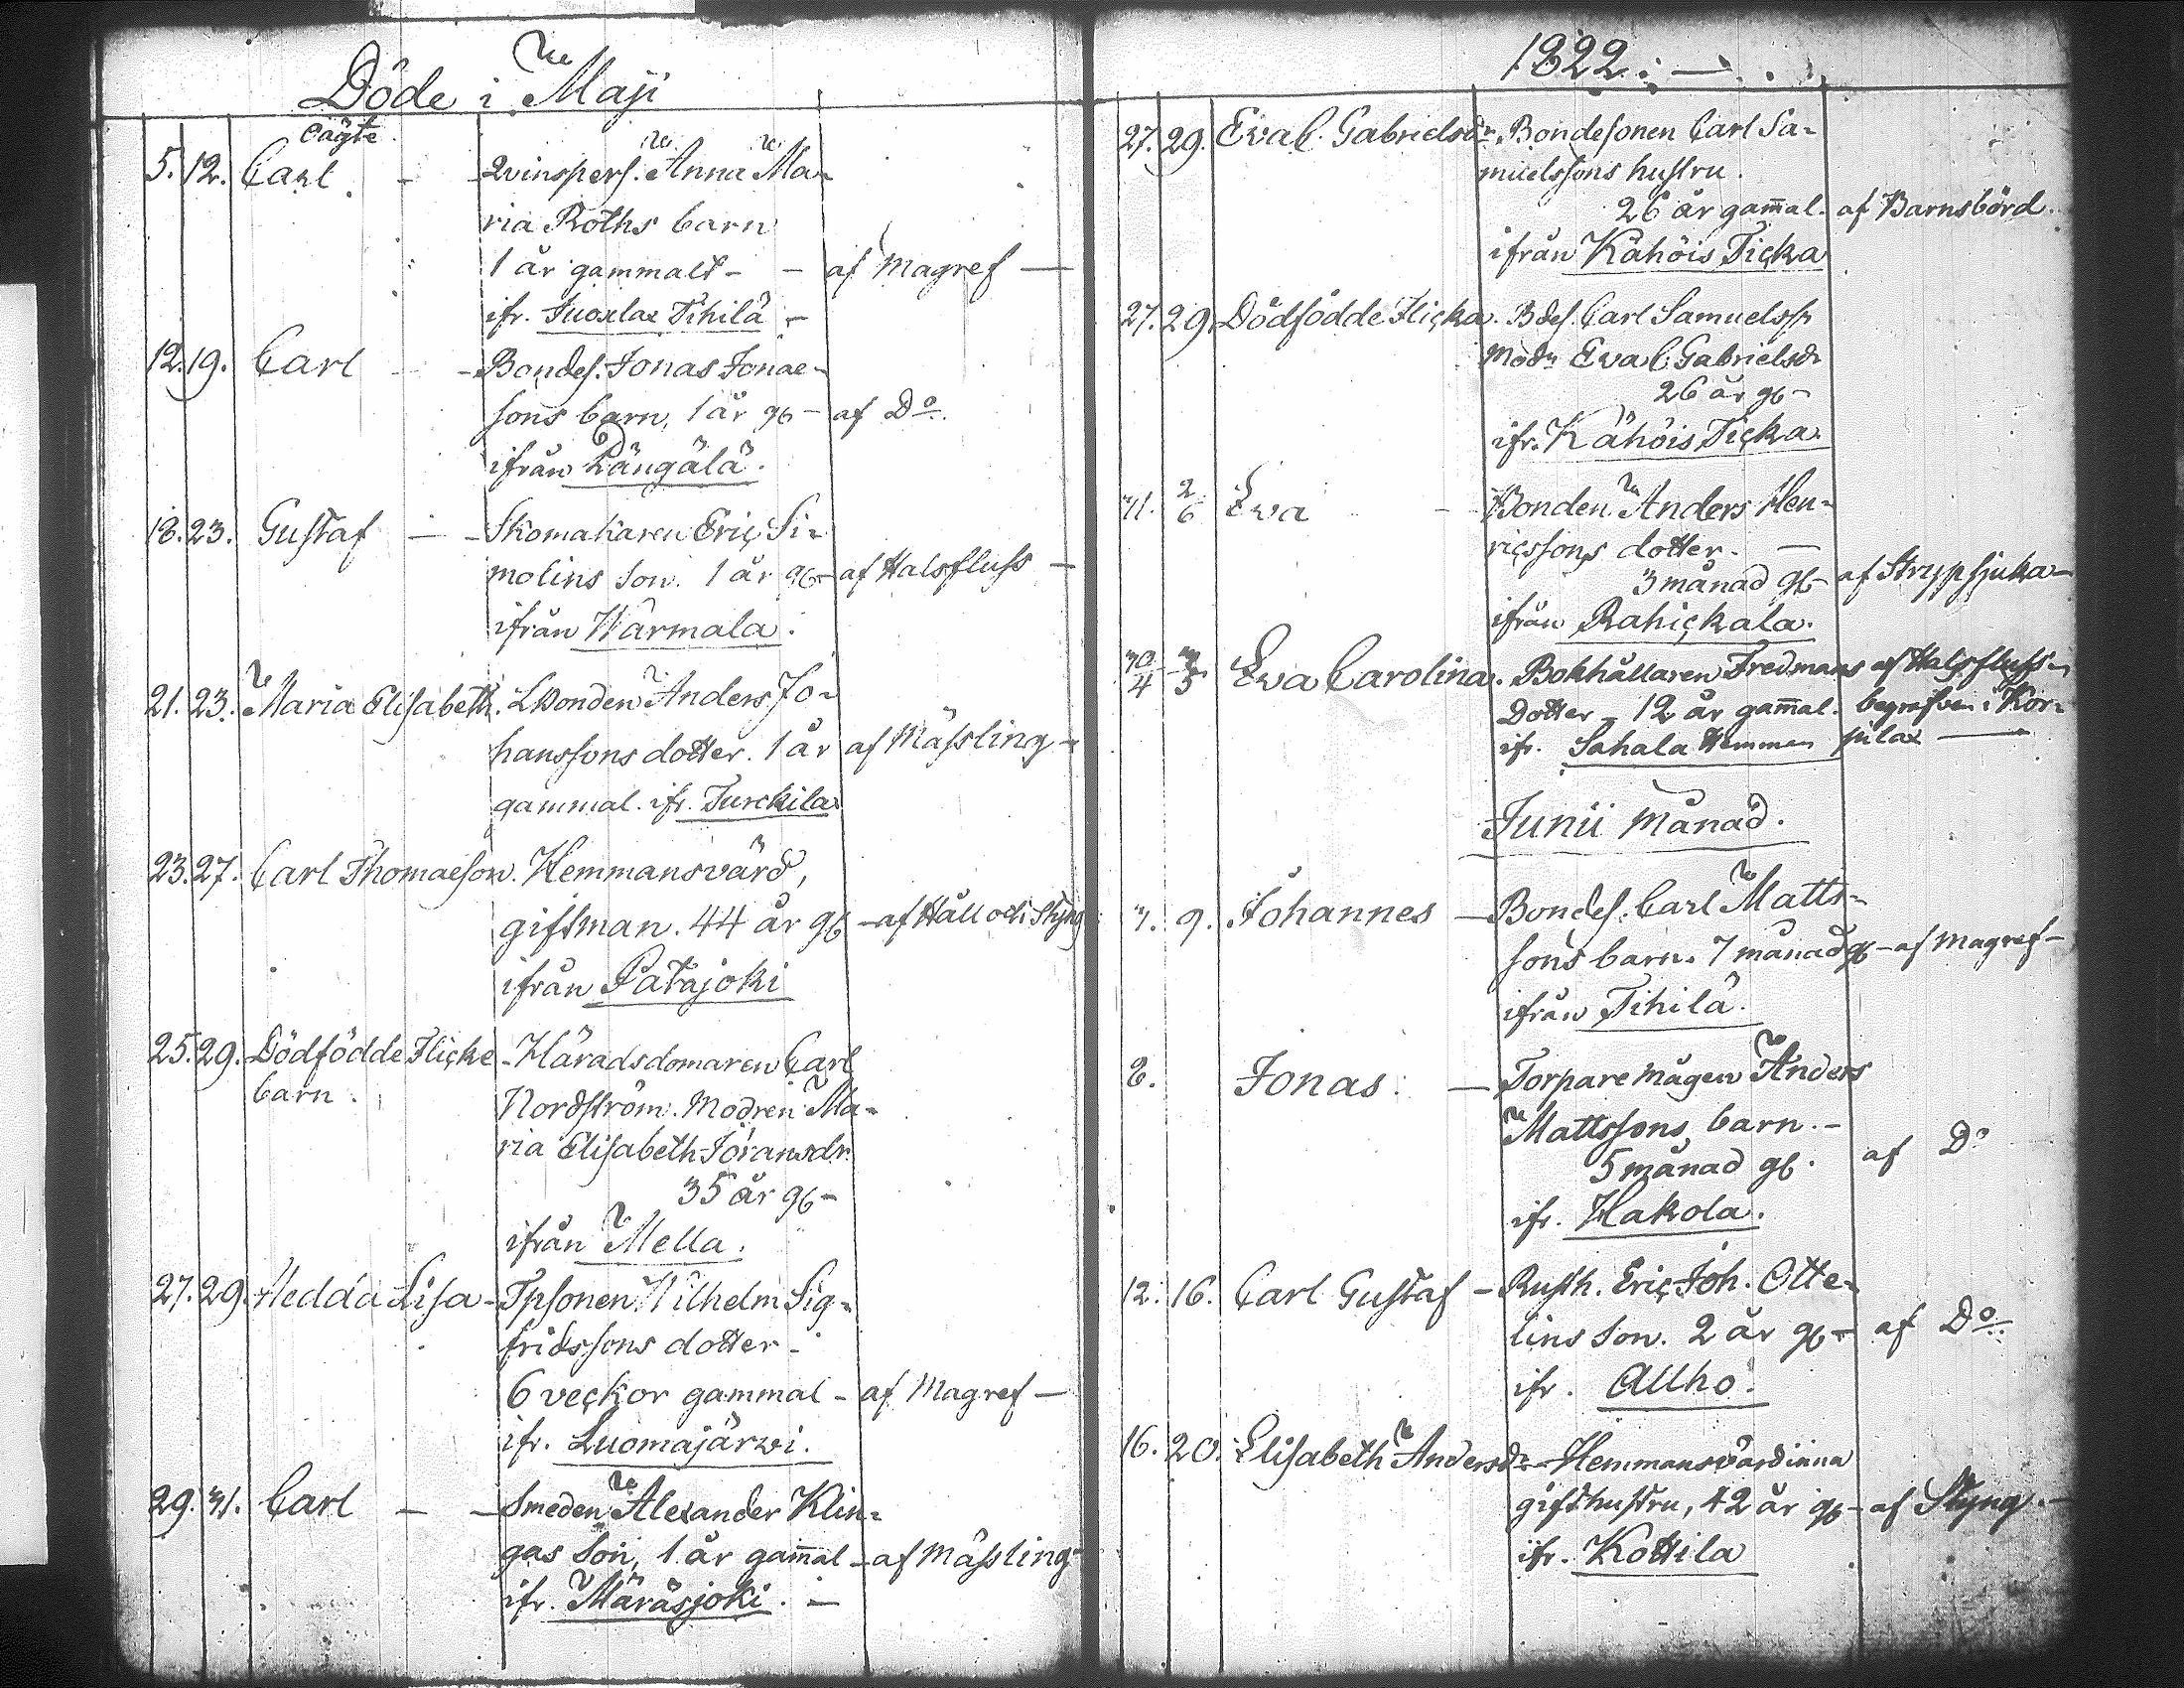 Döde i Maji
oägte
5. 12. Carl. - - Qvinspers. Anna Ma-
ria Roths barn
1 år gammalt - - af Magref -
ifr. Tihilä -
12. 19. Carl - - Bondes. Jonas Jonae-
sons barn, 1 år gl - af Do.
ifrån Långälä.
18. 23. Gustaf - - Skomakaren Eric Si-
molins Son. 1 år gl - af Halsfluss -
ifrån Warmala.
21. 23. Maria Elisabeth. LBonden Anders Jo-
hanssons dotter. 1 år af Mässling -
gammal. ifr. Turckila
23. 27. Carl Thomaeson. Hemmansvärd,
giftman. 44 år gl - af Håll och Styng
ifrån Patajoki
25. 29. Dödfödde Flicke - Häradsdomaren Carl
barn. Nordström. Modren Ma-
ria Elisabeth Jöransdr.
35 år gl -
ifrån Mella.
27. 29. Hedda Lisa - Tpsonen Wilhelm Sig-
fridssons dotter -
6 veckor gammal - af Magref -
ifr. Luomajärwi.
29. 31. Carl - - Smeden Alexander Klin-
gas Son, 1 år gam̄al - af Mässling -
ifr. Märäsjoki. -
1822. -
27. 29. Eva C. Gabrielsdr. Bondesonen Carl Sa-
muelssons hustru.
26 år gam̄al. af Barnsbörd.
ifrån Kähöis Ticka
27. 29. Dödfödde Flicka. Bdes. Carl Samuelss.
Modr Eva C. Gabrielsdr
26 år gl -
ifr. Kähöis Ticka.
31. 2/6 Eva - Bonden Anders Hen-
ricssons dotter. -
3 månad gl - af Strypsjuka -
ifrån Rahickala.
30/4 3/5 Eva Carolina. Bokhållaren Fredmans af Halsfluss -
Dotter - 12 år gam̄al. begrafven i Kor-
ifr. Sahala Hemman pilax -
Junii Månad.
3. 9. Johannes - Bondes. Carl Matts-
sons barn. 7 månad gl - af Magref -
ifrån Tihilä.
8. Jonas. - Torpare mågen Anders
Mattssons barn. -
5 månad gl. af Do
ifr. Hakola.
12. 16. Carl Gustaf - Rusth. Eric Joh. Otte-
lins Son. 2 år gl - af Do.
ifr. Allho.
16. 20. Elisabeth Andersdr - Hemmansvärdinna
gift hustru, 42 år gl - af Styng. -
ifr. Kottila